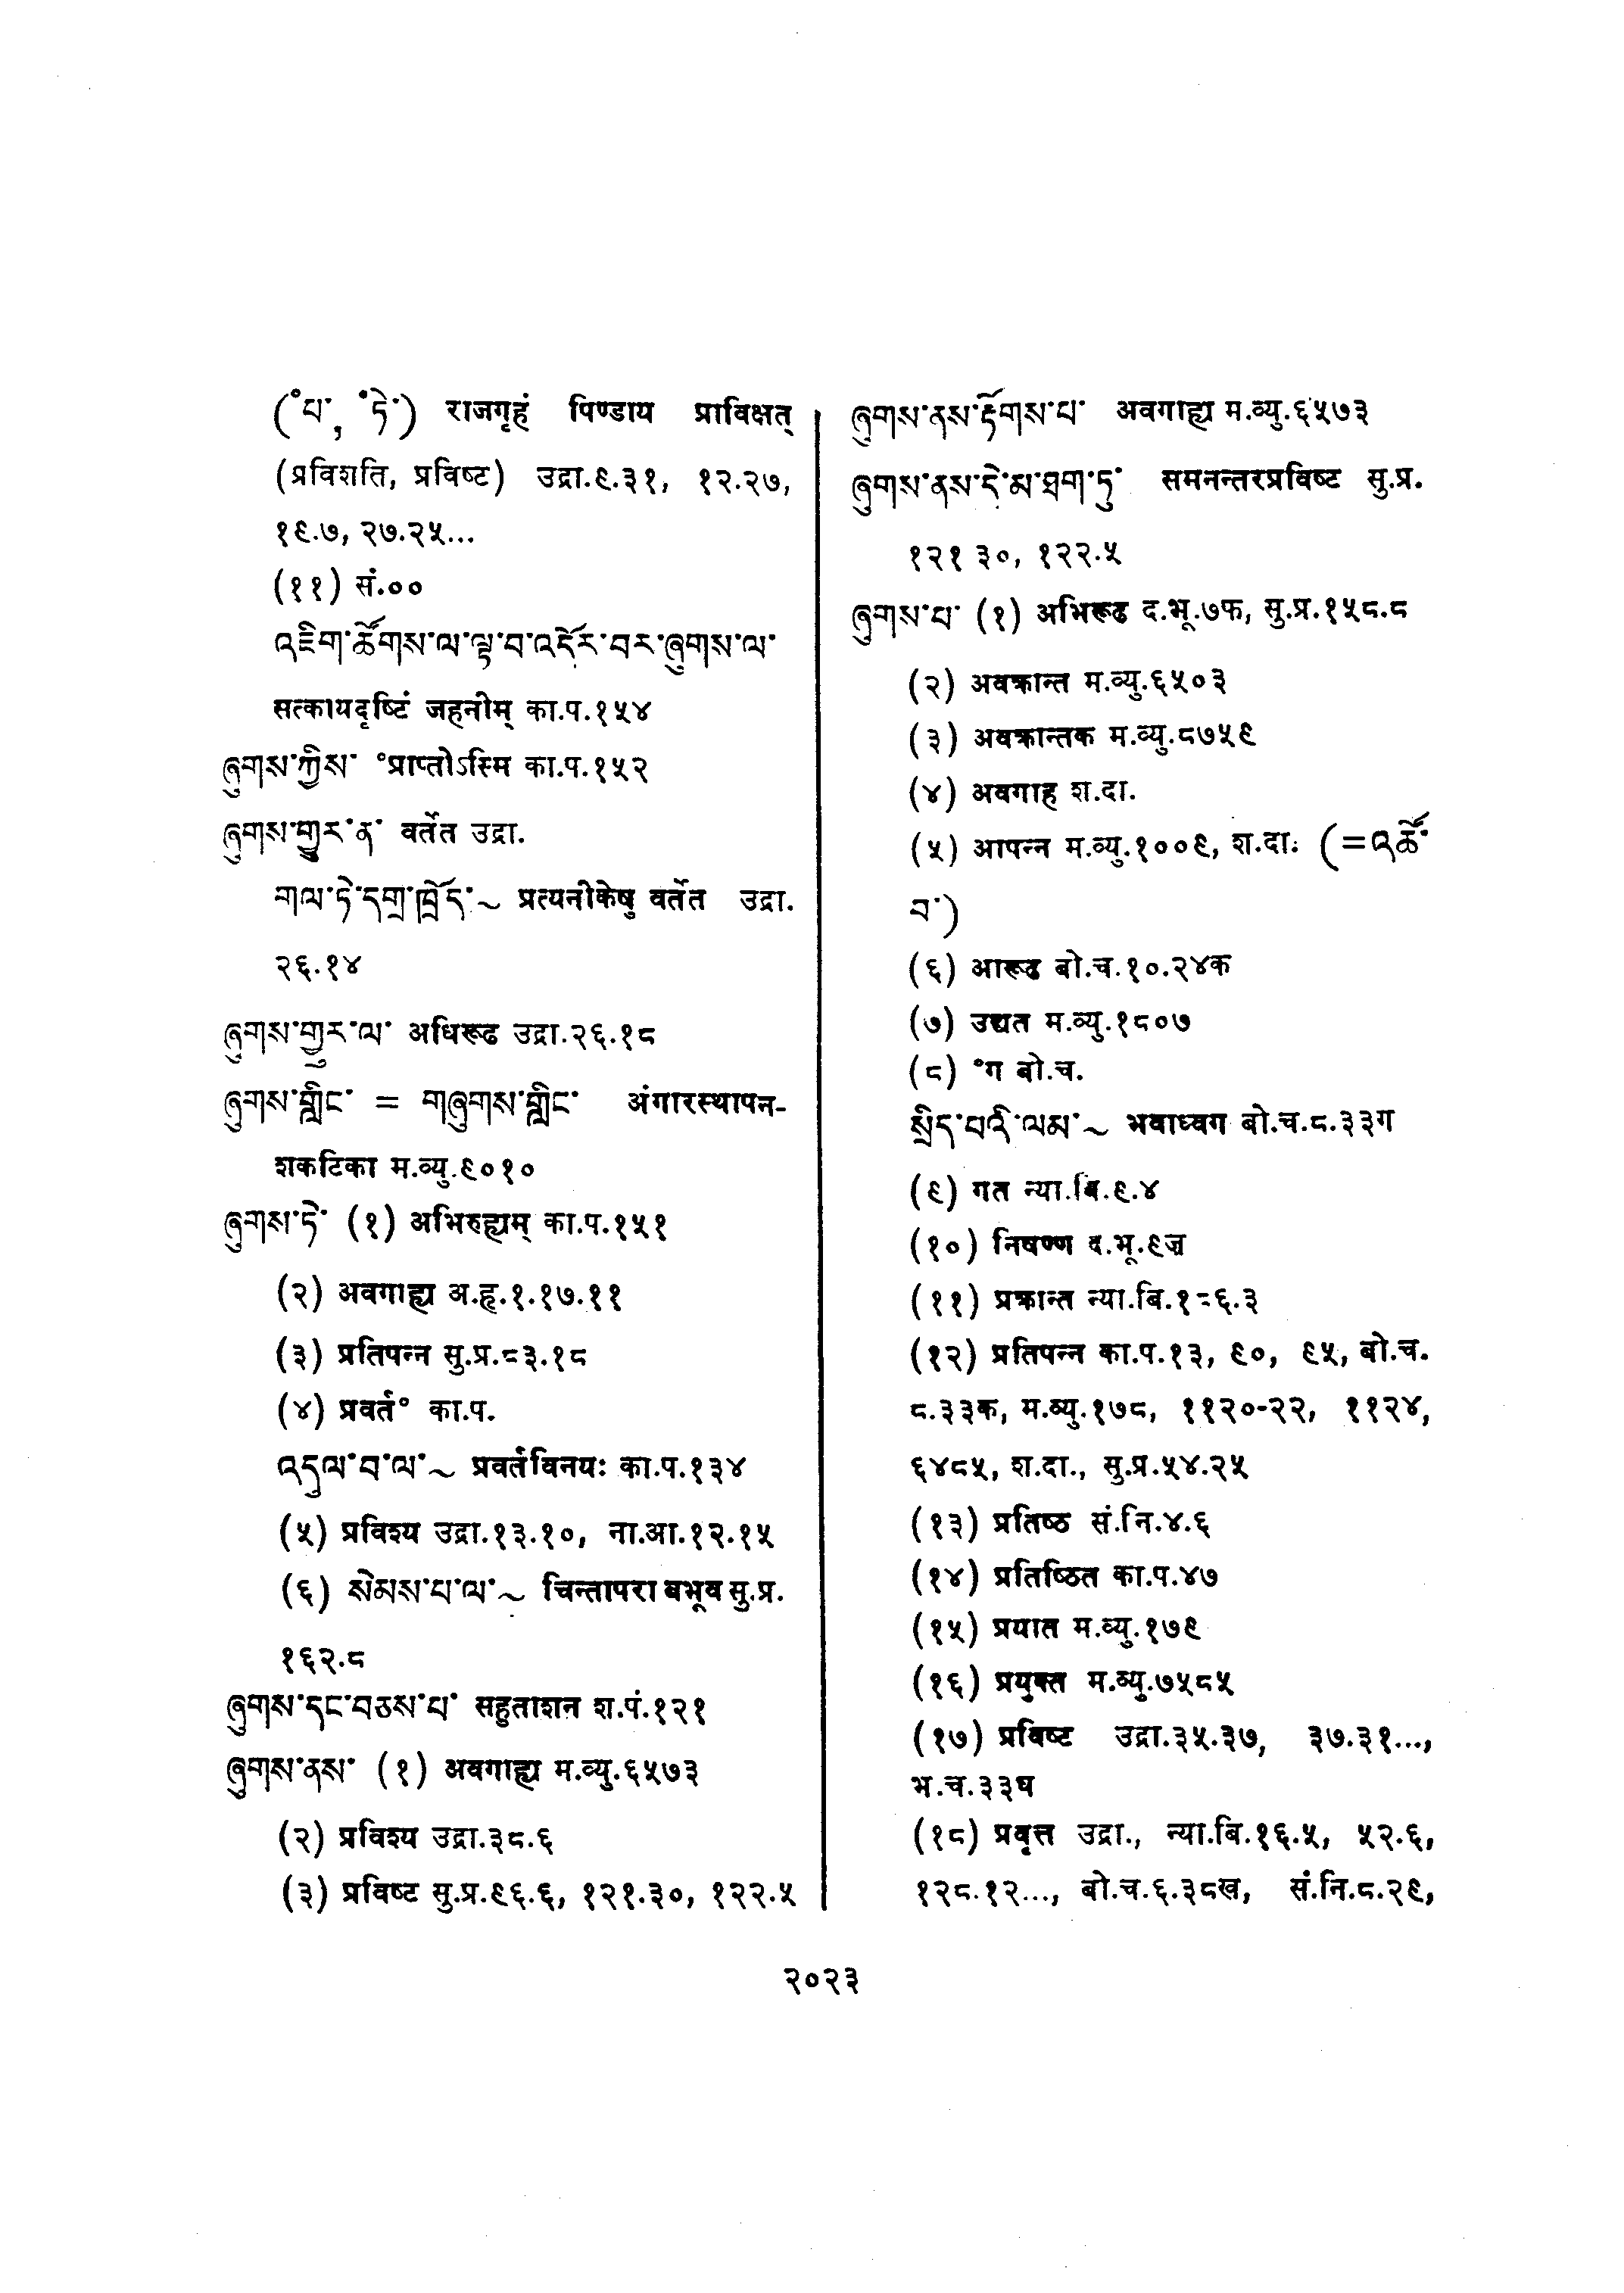 (°པ་, °ཏེ་) राजगृहं पिण्डाय प्राविक्षत्
(प्रविशति, प्रविष्ट) उद्रा.९.३१, १२.२७,
१९.७, २७.२५...
(११) सं.००
འཇིག་ཚོགས་ལ་ལྟ་བ་འདོར་བར་ཞུགས་ལ་
सत्कायदृष्टिं जहनीम् का.प.१५४
ཞུགས་ཀྱིས་ °प्राप्तोऽस्मि का.प.१५२
ཞུགས་གྱུར་ན་ वर्तेत उद्रा.
གལ་ཏེ་དགྲ་ཁྲོད་~ प्रत्यनीकेषु वर्तेत उद्रा.
२६.१४
ཞུགས་གྱུར་ལ་ अधिरूढ उद्रा.२६.१८
ཞུགས་གླིང་ = གཞུགས་གླིང་ अंगारस्थापन-
शकटिका म.व्यु.९०१०
ཞུགས་ཏེ་ (१) अभिरुह्यम् का.प.१५१
(२) अवगाह्य अ.हृ.१.१७.११
(३) प्रतिपन्न सु.प्र.८३.१८
(४) प्रवर्त° का.प.
འདུལ་བ་ལ་~ प्रवर्तविनयः का.प.१३४
(५) प्रविश्य उद्रा.१३.१०, ना.आ.१२.१५
(६) སེམས་པ་ལ་~ चिन्तापरा बभूव सु.प्र.
१६२.८
ཞུགས་དང་བཅས་པ་ सहुताशन श.पं.१२१
ཞུགས་ནས་ (१) अवगाह्य म.व्यु.६५७३
(२) प्रविश्य उद्रा.३८.६
(३) प्रविष्ट सु.प्र.९६.६, १२१.३०, १२२.५
ཞུགས་ནས་རྟོགས་པ་ अवगाह्य म.व्यु.६५७३
ཞུགས་ནས་དེ་མ་ཐག་ཏུ་ समनन्तरप्रविष्ट सु.प्र.
१२१ ३०, १२२.५
ཞུགས་པ་ (१) अभिरूढ द.भू.७फ, सु.प्र.१५८.८
(२) अवक्रान्त म.व्यु.६५०३
(३) अवक्रान्तक म.व्यु.८७५९
(४) अवगाह श.दा.
(५) आपन्न म.व्यु.१००९, श.दा. (=འཚོ་
བ་)
(६) आरूढ बो.च.१०.२४क
(७) उद्यत म.व्यु.१८०७
(८) °ग बो.च.
སྲིད་པའི་ལམ་~ भवाध्वग बो.च.८.३३ग
(९) गत न्या.बि.९.४
(१०) निषण्ण द.भू.९ज
(११) प्रक्रान्त न्या.बि.१८६.३
(१२) प्रतिपन्न का.प.१३, ९०, ९५, बो.च.
८.३३क, म.व्यु.१७८, ११२०-२२, ११२४,
६४८५, श.दा., सु.प्र.५४.२५
(१३) प्रतिष्ठ सं.नि.४.६
(१४) प्रतिष्ठित का.प.४७
(१५) प्रयात म.व्यु.१७९
(१६) प्रयुक्त म.व्यु.७५८५
(१७) प्रविष्ट उद्रा.३५.३७, ३७.३१...,
भ.च.३३घ
(१८) प्रवृत्त उद्रा., न्या.बि.१६.५, ५२.६,
१२८.१२..., बो.च.६.३८ख, सं.नि.८.२९,
२०२३